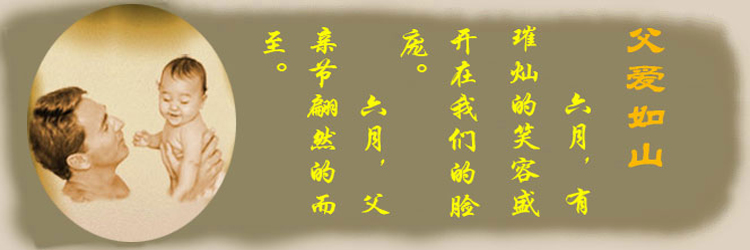 父爱如山
六月，有
璀灿的笑容盛
开在我们的脸
庞。
六月，父
亲节翩然的而
至。